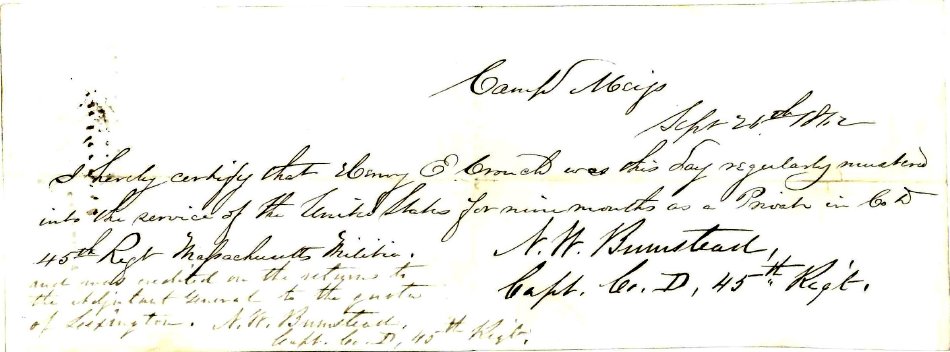 Camp Meigs
Sept 26th 1862
I hereby certify that Henry E. Crouch was this day regularly mustered
into the service of the United States for nine months as a Private in Co D
45th Regt Massachusetts Militia.
N. W. Bumstead,
Capt. Co. D, 45th Regt.
and was credited on the returns to
the Adjutant General to the quota
of Lexington. N. W. Bumstead.
Capt. Co. D, 45th Regt.